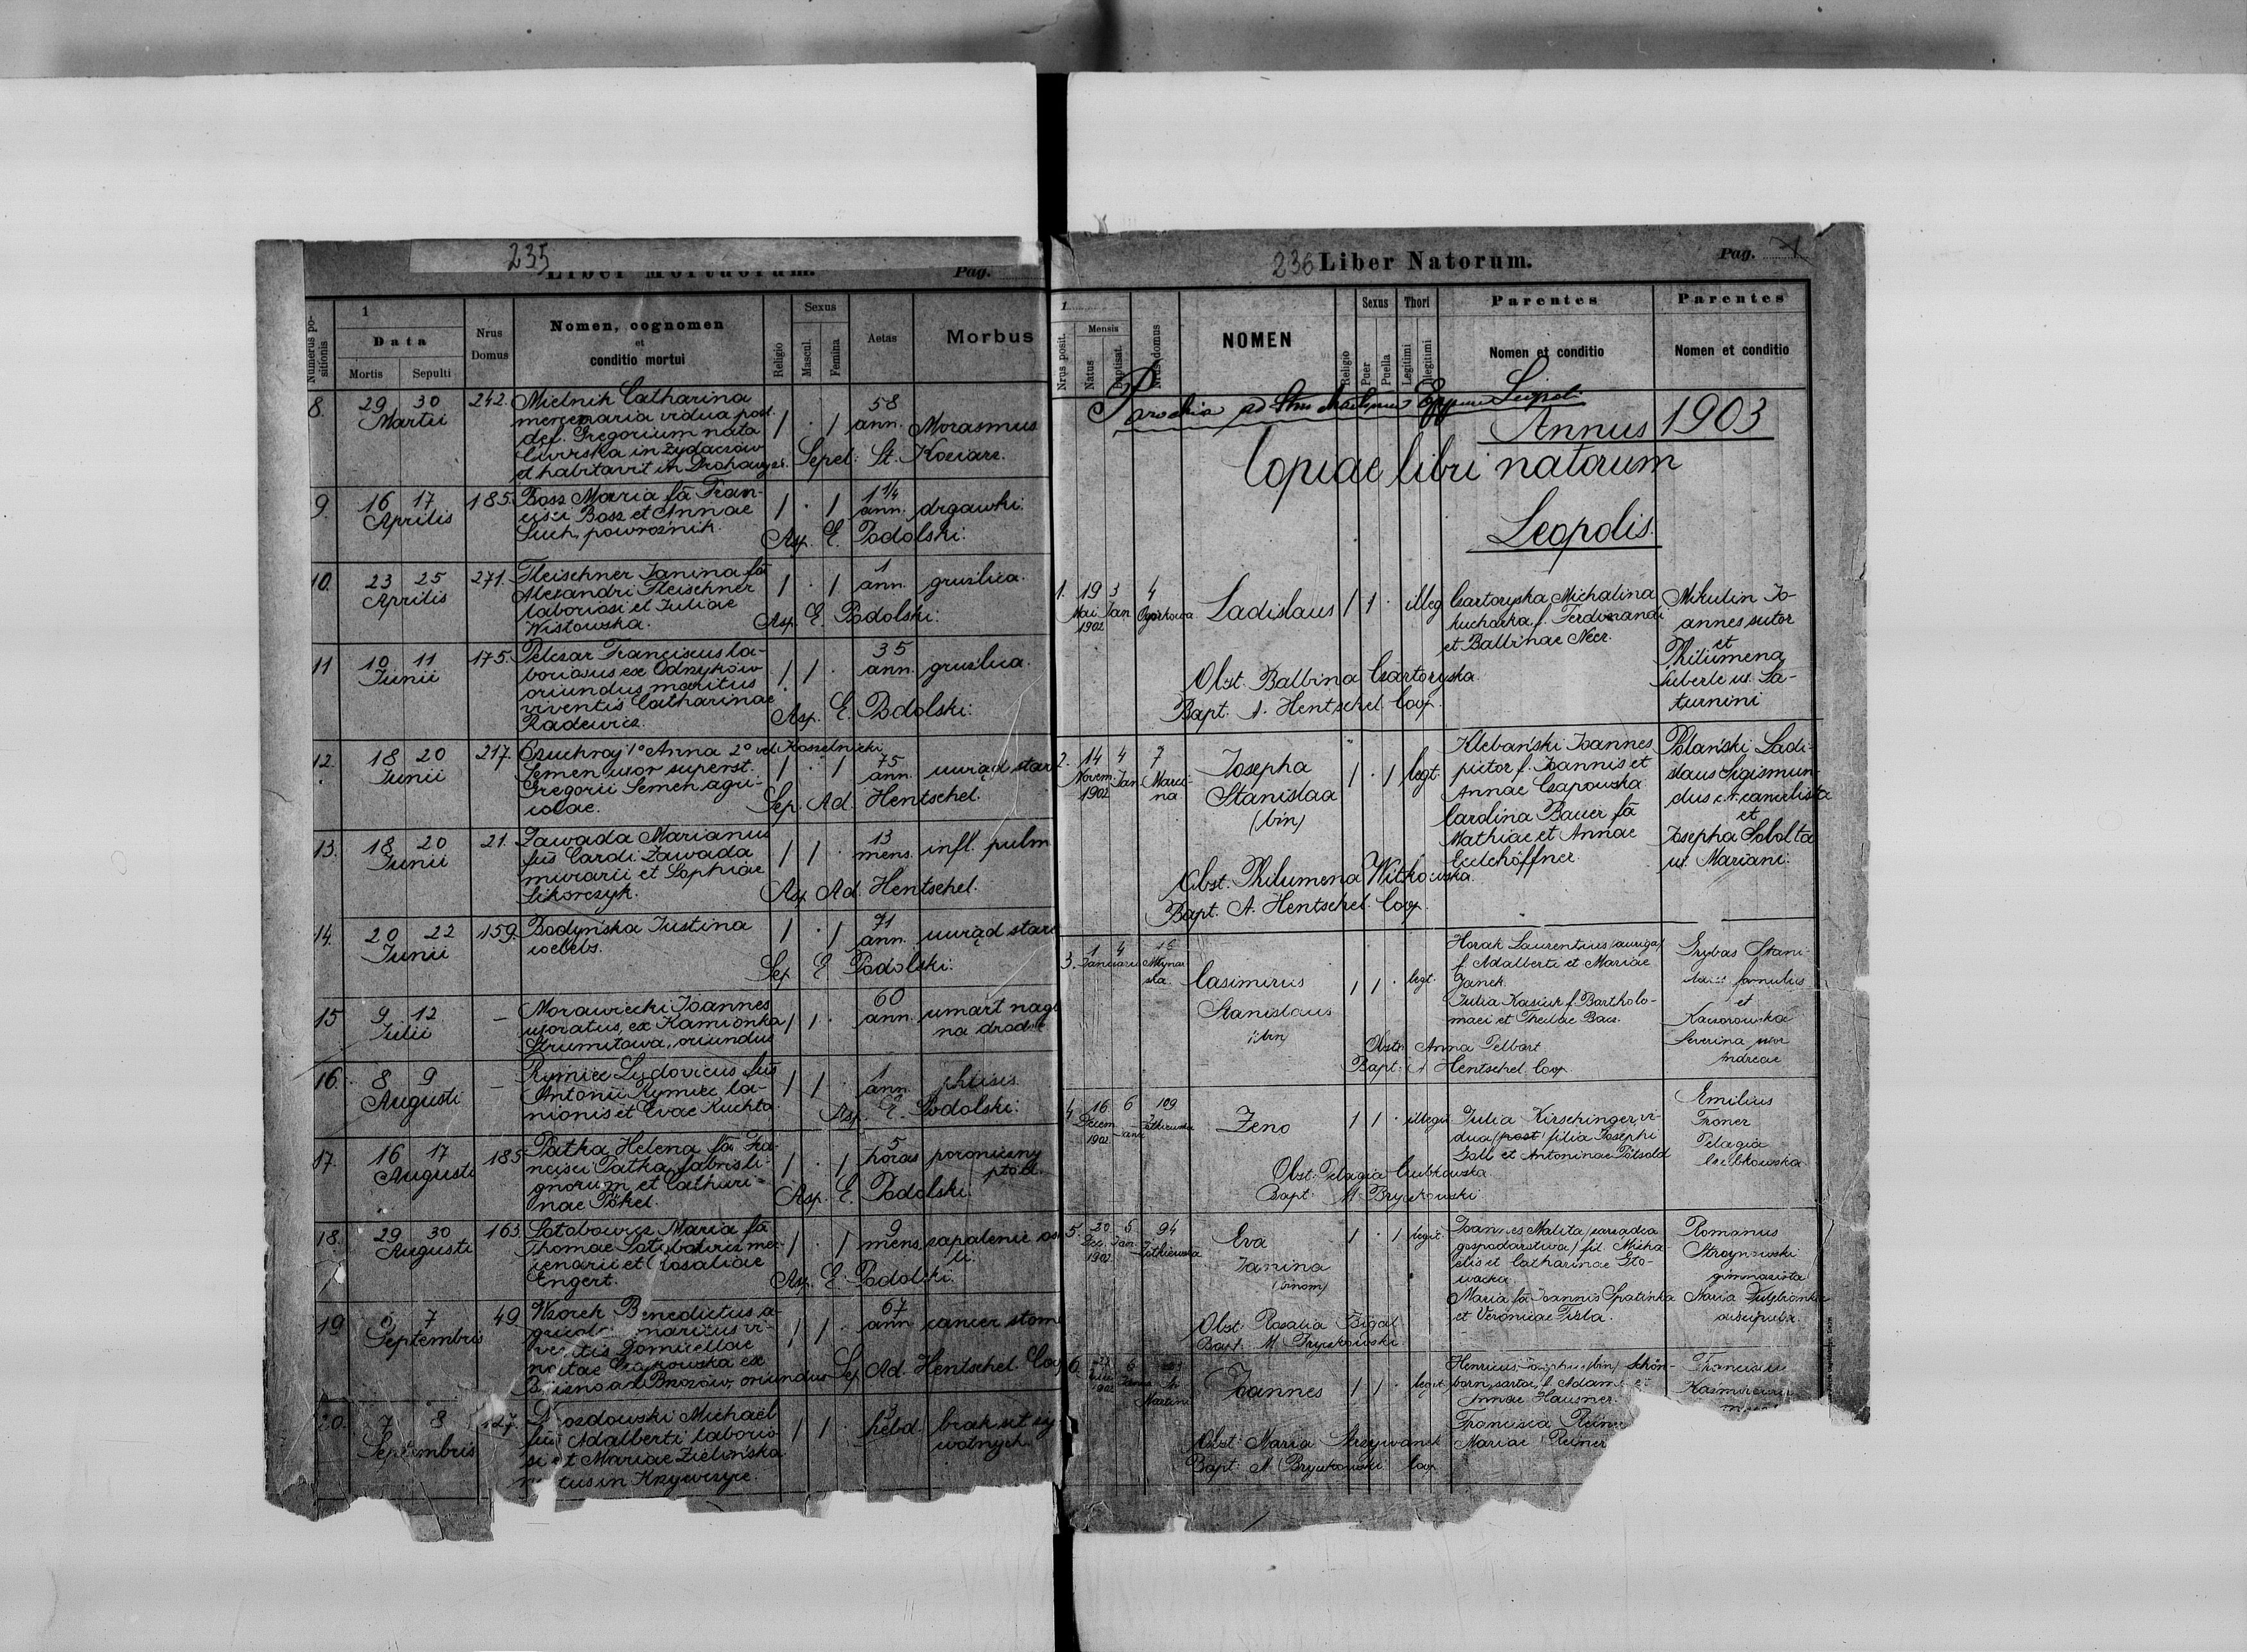 235
Liber Mortuorum.
Pag.
Numerus positionis
1
Data
Mortis
Sepulti
Nrus Domus
Nomen, cognomen
et
conditio mortui
Religio
Sexus
Mascul.
Femina
Aetas
Morbus
8. 29 30 Martii 242. Mielnik Catharina
mercenaria vidua post.
def. Gregorium nata
in Żydaczów
et habitavit in
1 . 1 58 ann. Morasmus
Sepel: St. Koziarz.
9. 16 17 Aprilis 185. Bosz Maria fa Fran-
cisci Bosz et Annae
Such, powroźnik.
1 . 1 1 1/4 ann. drgawki.
Asp. E. Podolski:
10. 23 25 Aprilis 271. Fleischner Janina fa
Alexandri Fleischner
laboriosi et Juliae
Wistowska.
1 . 1 1 ann. gruźlica.
Asp. E. Podolski:
11 10 11 Junii 175. Pelczar Franciscus la-
boriosus ex Odrzyków
oriundus maritus
viventis Catharinae
Radewicz.
1 1 . 35 ann. gruźlica.
Asp. E. Podolski:
12. 18 20 Junii 217. Czuchraj 1o Anna 2o vel Koszelnicki
Semen uxor superst.
Gregorii Semen agri-
colae.
1 . 1 75 ann. uwiąd star
Sep. Ad. Hentschel.
13. 18 20 Junii 21. Zawada Marianus
fus Caroli Zawada
murarii et Sophiae
Sikorczyk.
1 1 . 13 mens. infl. pulm
Asp. Ad. Hentschel.
14. 20 22 Junii 159. Bodyńska Justina
coelebs.
1 . 1 71 ann. uwiąd star
Sep. E. Podolski:
15 9 12 Julii – Morawiecki Joannes
uxoratus, ex Kamionka
Strumiłowa, oriundus
1 1 . 60 ann. umarł nagl
na drodze
16. 8 9 Augusti – Rymiec Ludovicus fus
Antonii Rymiec, la-
nionis et Evae Kuchta
1 1 . 1 ann. phtisis.
Asp. E. Podolski:
17. 16 17 Augusti 185 Patka Helena fa Fra-
ncisci Patka, fabris li-
gnorum et Cathari-
nae Pökel.
1 . 1 5 horas poroniczny
płód.
Asp. E. Podolski.
18. 29 30 Augusti 163. Maria fa
Thomae mer-
cenarii et Rosaliae
Engert.
1 . 1 9 mens. zapalenie os
li.
Asp. E. Podolski.
19 6 7 Septembris 49 Wsorek Benedictus a-
gricola maritus vi-
ventis Domicellae
natae Czajkowska ex
ad Brzozów, oriundus
1 1 . 67 ann cancer stom
Sep. Ad. Hentschel Coop
20. 7 8 Septembris 127. Michaël
fus Adalberti laborio
si et Mariae Zielińska
natus in Krzywczyce.
1 1 . 3 hebd. brak sił ży
wotnych.
236 Liber Natorum.
Pag. 1
1.
Nrus posit.
Mensis
Natus
Baptisat.
Nrus domus
NOMEN
Religio
Sexus
Puer
Puella
Thori
Legitimi
Illegitimi
Parentes
Nomen et conditio
Parentes
Nomen et conditio
Parochia ad Stm Martinum Eppum Leopol.
Annus 1903
Copiae libri natorum
Leopolis.
1. 19 Mai 1902 3 Jan 4 Ogórkowa Ladislaus 1 1 . illeg
Czartoryska Michalina
kucharka f. Ferdinandi
et Balbinae Neer.
Mikulin Jo-
annes sutor
et
Philumena
Siberle ux. Sa-
turnini
Obst. Balbina Czartoryska
Bapt. A. Hentschel Coop.
2. 14 Novem. 1902 4 Jan 7 Marci-
na
Josepha
Stanislaa
(bin)
1 . 1 legt.
Klebański Joannes
pictor f. Joannis et
Annae Czapowska
Carolina Bauer fa
Mathiae et Annae
Eedehöffner.
Polański Ladi-
slaus Sigismun-
dus c.r. cancelista
et
Josepha Sobolta
ux. Mariani.
Obst. Philumena Witkowska.
Bapt. A. Hentschel Coop.
3. 1 4 Januarii 16 Młynar
ska
Casimirus
Stanislaus
(bin)
1 1 . legt.
Horak Laurentius (auriga)
f. Adalberti et Mariae
Janek.
Julia Kasiuk f. Bartholo-
maei et Theclae Bacs.
Grybas Stani-
slaus famulus
et
Kaczorowska
Severina uxor
Andreae
Obstr. Anna Pelbart
Bapt. A Hentschel Coop
4. 16 Decem. 1902 6 Janr 109 Żółkiewska Zeno 1 1 . illegit
Julia Kirschinger, vi-
dua (post) filia Josephi
Gall et Antoninae Pätzold
Emilius
Troner
Pelagia
Cubkowska.
Obst. Pelagia Cubkowska
Bapt. M. Bryczkowski
5. 20 Dec. 1902 6 Jan. 94 Żółkiewska Eva
Janina
(binom)
1 . 1 legit.
Joannes Malita (zarządca
gospodarstwa) fil. Micha-
ëlis et Catharinae Gło-
wacka.
Maria fa Joannis Spatinka
et Veronicae Fisla.
Romanus
Stroynowski
gimnazista
Maria
Obst. Rosalia Bigal
Bapt. M. Bryczkowski
6. 1902 6 Janr St.
Martini
Joannes 1 1 . legit.
Henricus Josephus (bin) Schön-
born, sartor, f. Adami et
Annae Hausner.
Francisca Reiner
Mariae Reiner
Franciscus
Obst. Maria
Bapt. M Bryczkowski Coop